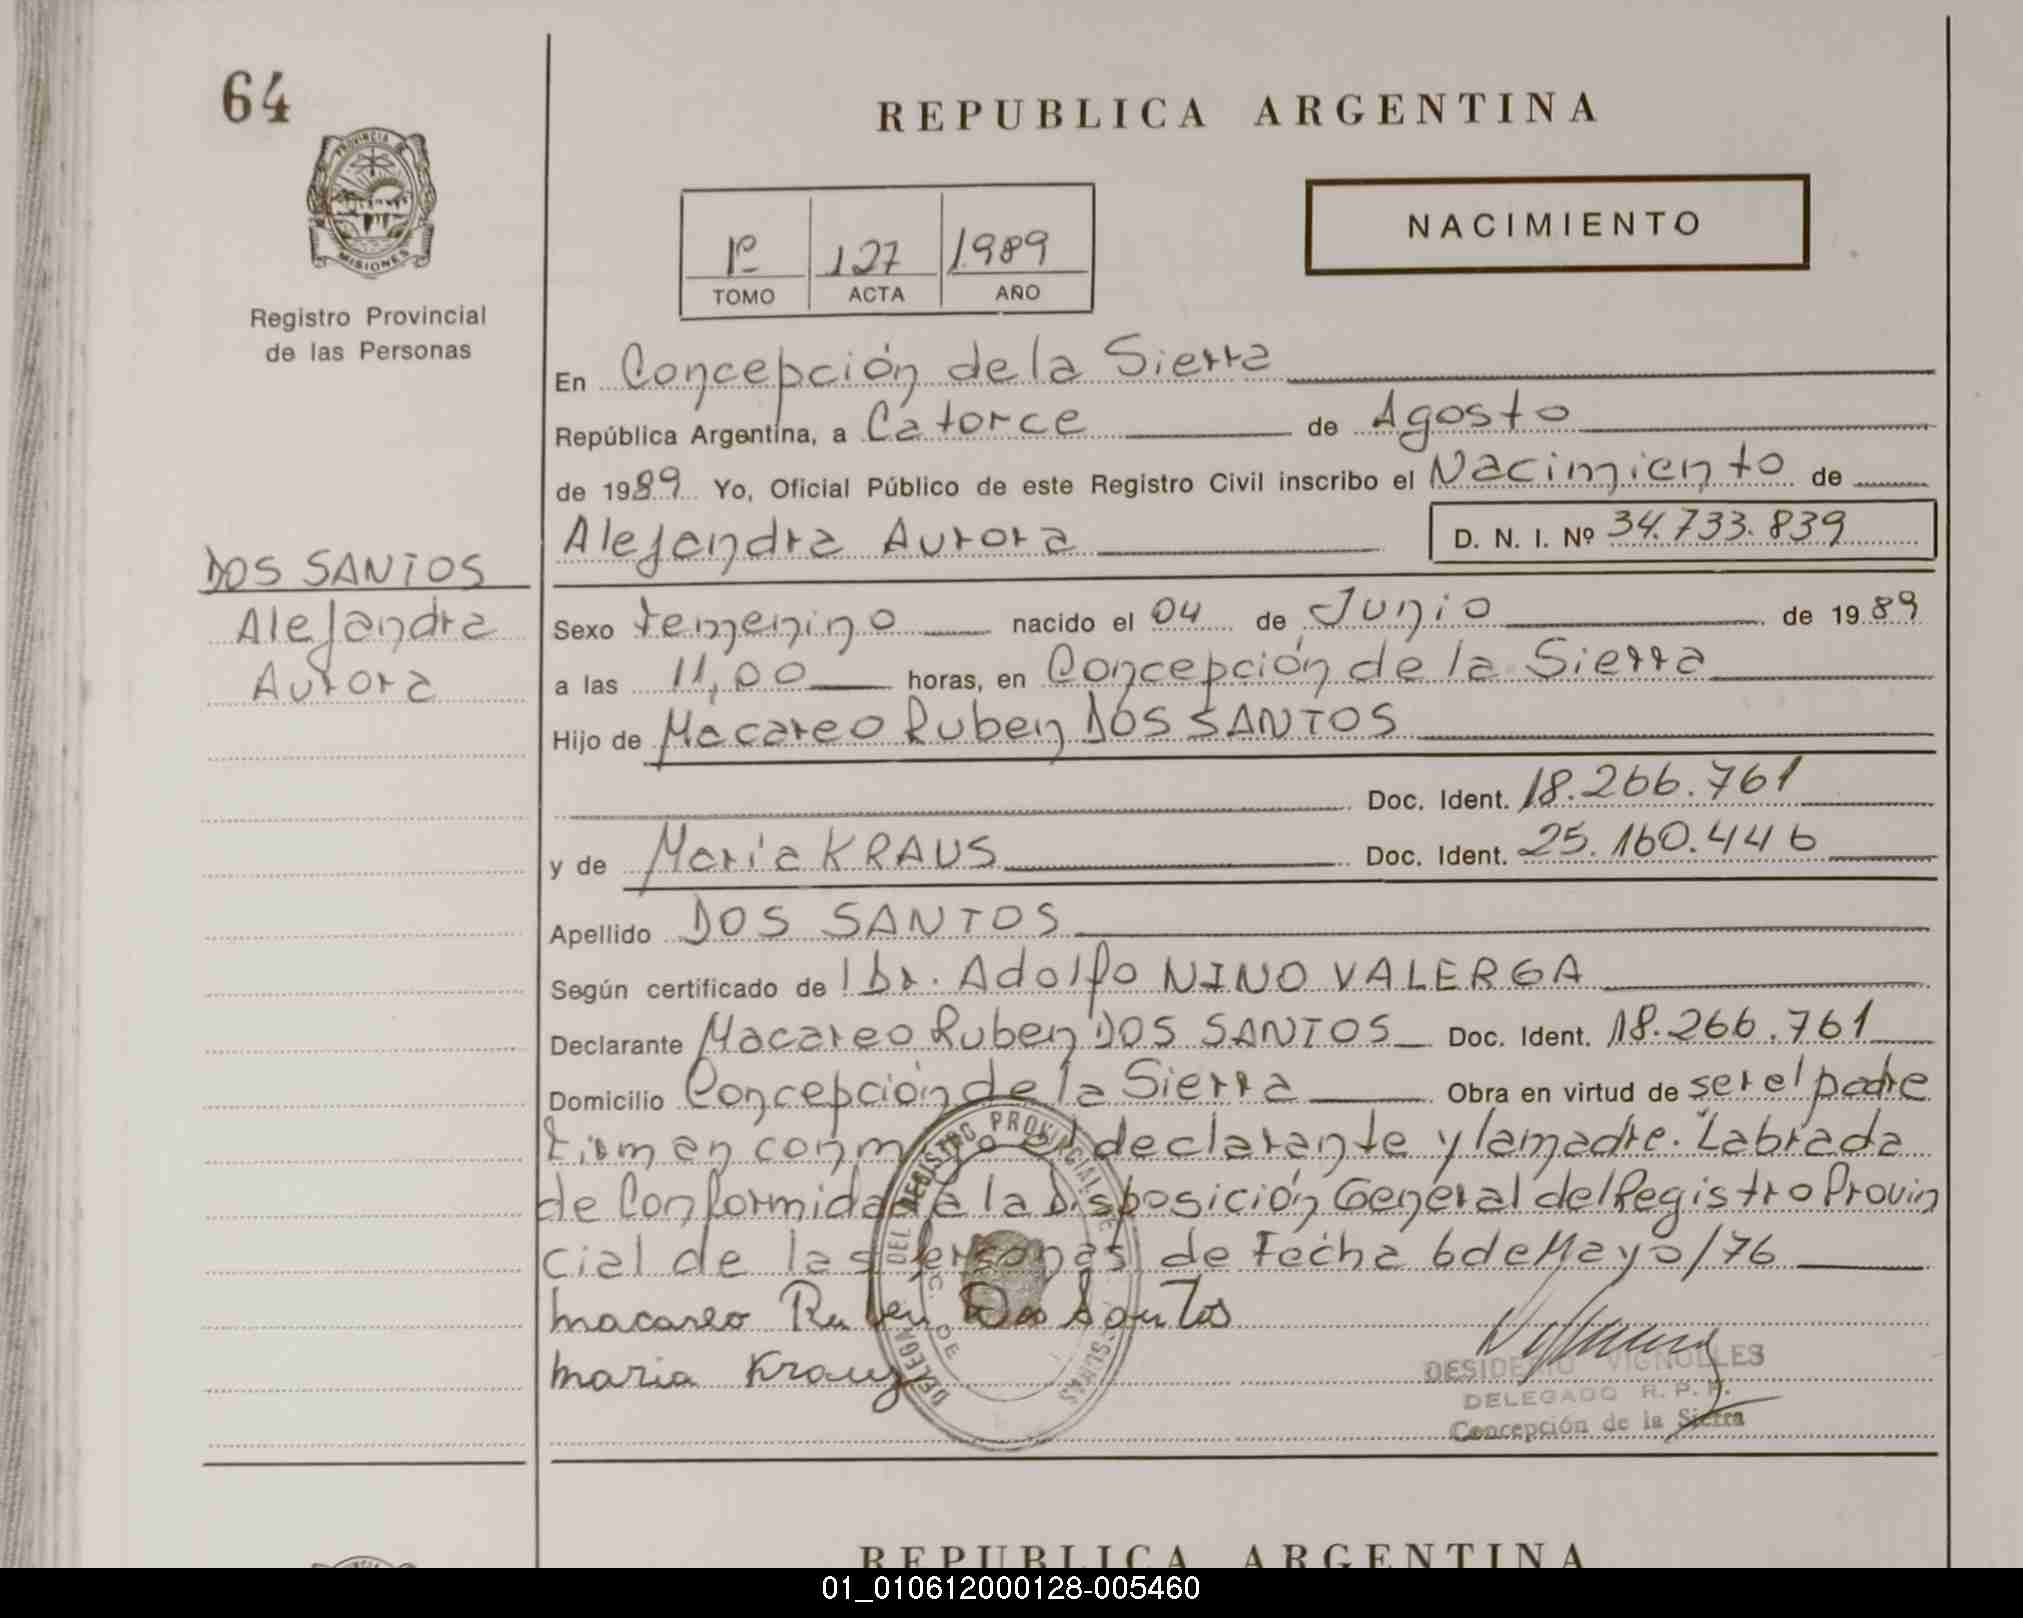 64
REPUBLICA ARGENTINA
PROVINCIA DE
MISIONES
Registro Provincial
de las Personas
NACIMIENTO
1º 127 1989
TOMO ACTA AÑO
En Concepción de la Sierra
República Argentina, a Catorce de Agosto
de 1989 Yo, Oficial Público de este Registro Civil inscribo el Nacimiento de
Alejandra Aurora D. N. I. Nº 34.733.839
DOS SANTOS
Alejandra
Aurora
Sexo Femenino nacido el 04 de Junio de 1989
a las 11,00 horas, en Concepción de la Sierra
Hijo de Macareo Ruben DOS SANTOS
Doc. Ident. 18.266.761
y de María KRAUS Doc. Ident. 25.160.446
Apellido DOS SANTOS
Según certificado de l Dr. Adolfo NINO VALERGA
Declarante Macareo Ruben DOS SANTOS Doc. Ident. 18.266.761
Domicilio Concepción de la Sierra Obra en virtud de ser el padre
Firman conmigo el declarante y la madre. Labrada
de Conformidad a la Disposición General del Registro Provin
cial de las Personas de Fecha 6 de Mayo/76
Macareo Ruben Dos Santos
Maria Kraus
DESIDERIO VIGNOLLES
DELEGADO R. P. P.
Concepción de la Sierra
REPUBLICA ARGENTINA
01_010612000128-005460